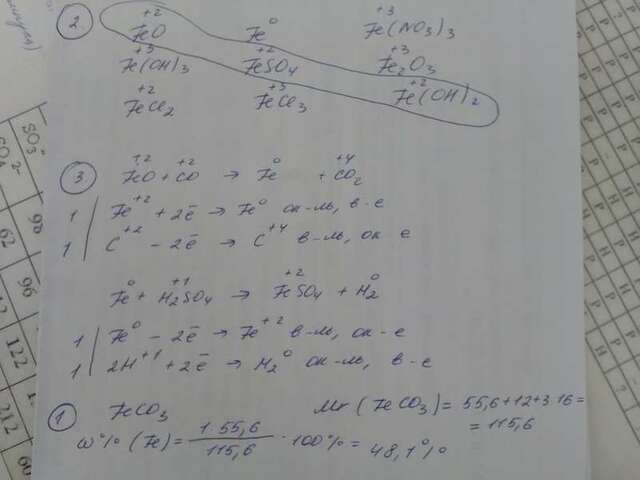 2 +2 FeO Fe⁰ +3 Fe(NO3)3
+3 Fe(OH)3 +2 FeSO4 +3 Fe2O3
+2 FeCl2 +3 FeCl3 +2 Fe(OH)2
3 +2 FeO + +2 CO → Fe⁰ + +4 CO2
1 | Fe⁺² + 2ē → Fe⁰ ок-ль, в-е
1 | C⁺² - 2ē → C⁺⁴ в-ль, ок е
Fe⁰ + +1 H2SO4 → +2 FeSO4 + H2⁰
1 | Fe⁰ - 2ē → Fe⁺² в-ль, ок-е
1 | 2H⁺¹ + 2ē → H2⁰ ок-ль, в-е
1 FeCO3 Mr (FeCO3) = 55,6+12+3·16=
= 115,6
ω% (Fe) = 1·55,6 / 115,6 · 100% = 48,1%
SO3²⁻
62
96
122
212
60